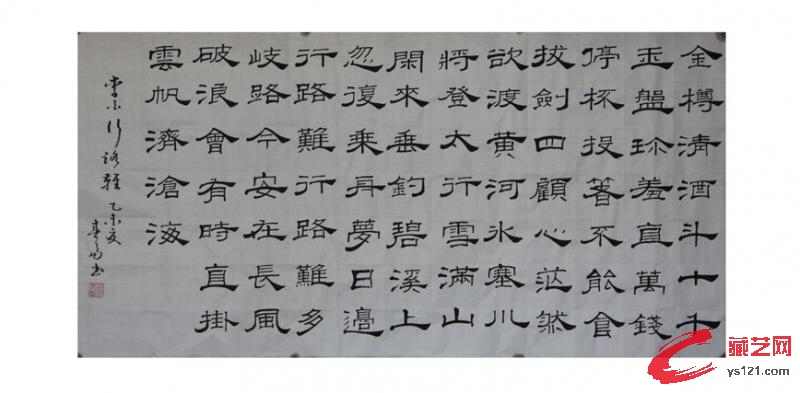 金樽清酒斗十千
玉盤珍羞直萬錢
停杯投箸不能食
拔劍四顧心茫然
欲渡黄河氷塞川
將登太行雪滿山
閑來垂釣碧溪上
忽復乘舟夢日邊
行路難行路難多
岐路今安在長風
破浪會有時直掛
雲帆濟滄海
李白行路難 乙未夏
書
藏艺网
ys121.com